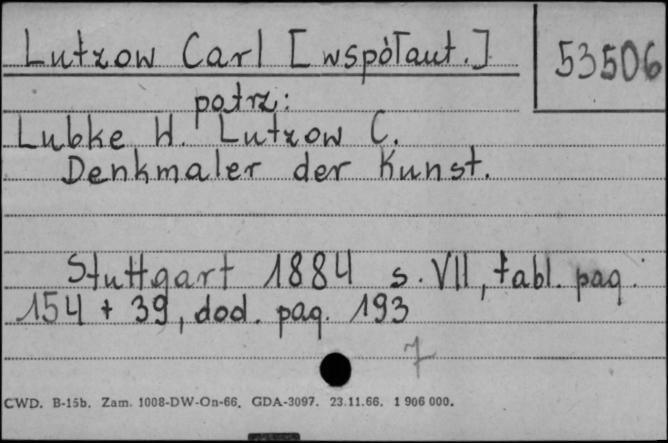 Lutzow Carl [współaut.]
53506
patrz:
Lubke W. Lutzow C.
Denkmaler der Kunst.
Stuttgart 1884 s. VII, tabl. pag.
154 + 39, dod. pag. 193
7
CWD. B-15b. Zam. 1008-DW-On-66. GDA-3097. 23.11.66. 1 906 000.